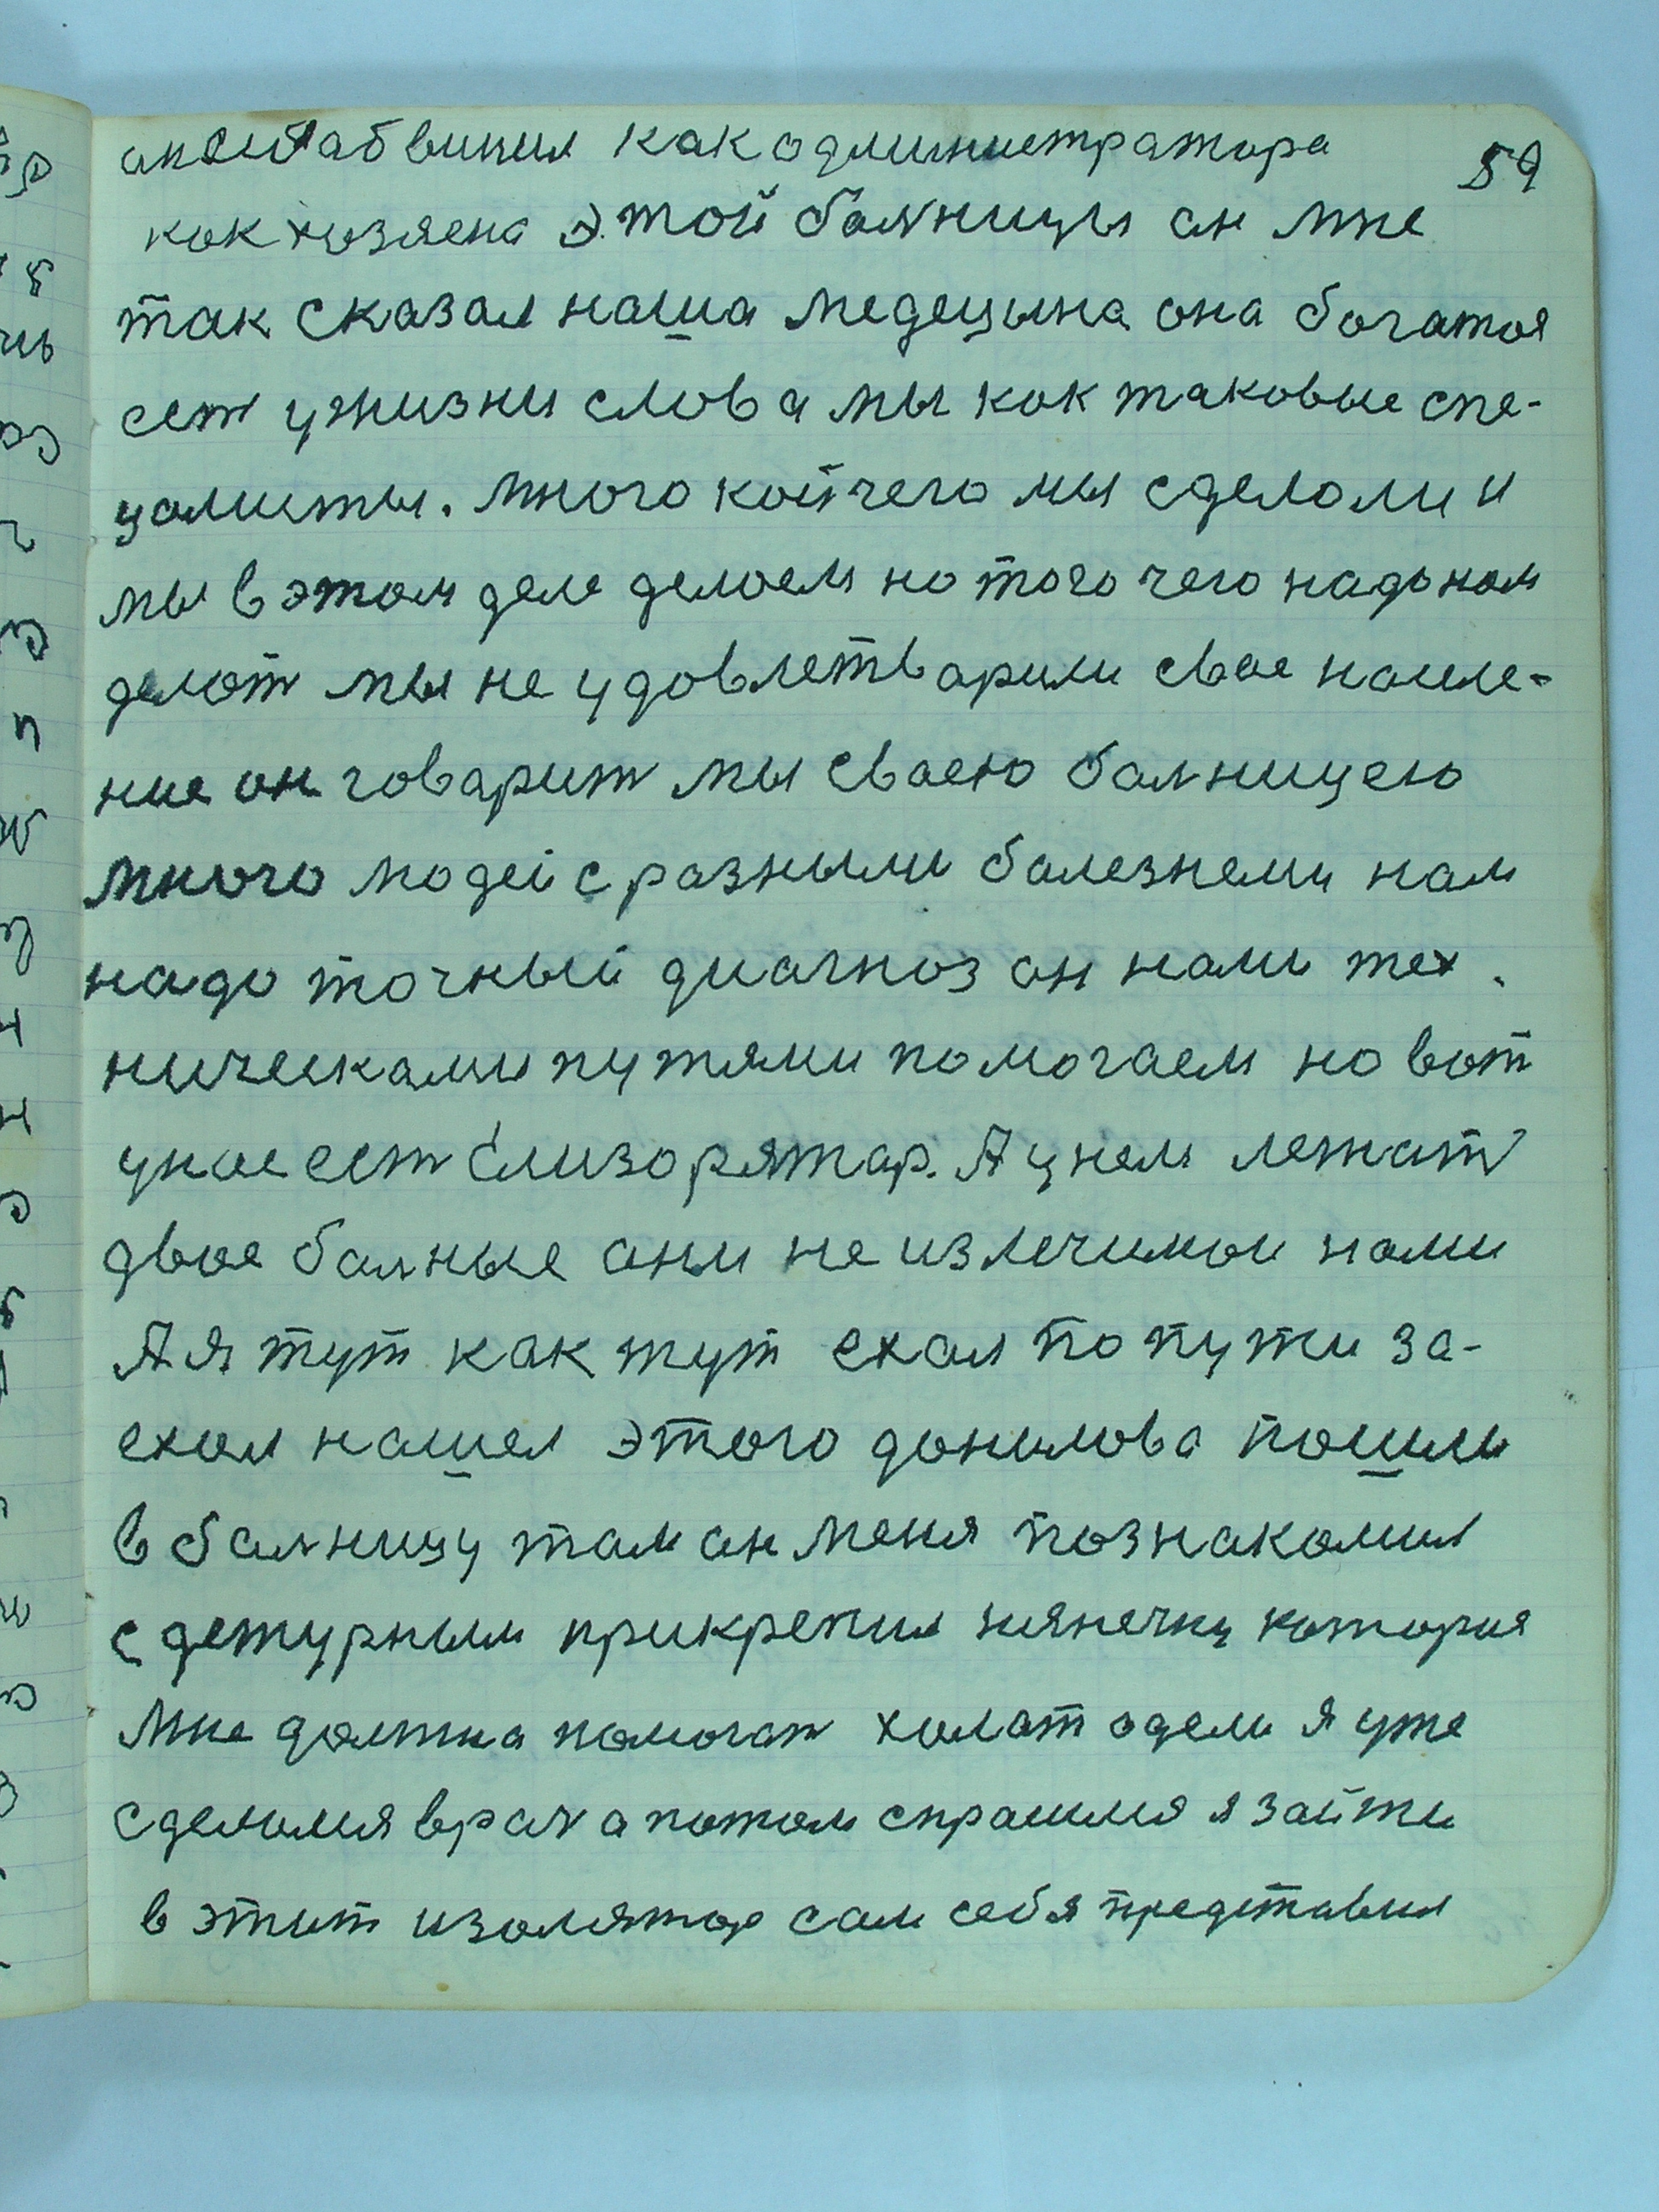 59
абвинил как одминистратора
как хозяена этой балницы он мне
так сказал наша медецына она богатоя
сет ужизни слова мы как таковые спе-
цолисты. много койчего мы сделоли и
мы в этом деле делоем но того чего надо ном
делот мы не удовлетварили свое насиле-
ние он говарит мы сваею балницею
много людей с разными балезнеми нам
надо точный диагноз он нами тех.
ническами путями помогаем но вот
унас ест близорятар. А у нем лежат
двое балные они не излечимои нами
А я тут как тут ехал по пути за-
ехол нашел этого донилова пошли
в балницу там он меня познакомил
с дежурным прикрепил нянечку котория
мне должна помогат холат одели я уже
сделолия врач а потом спрашия я зайти
в этит изолятор сам себя представил